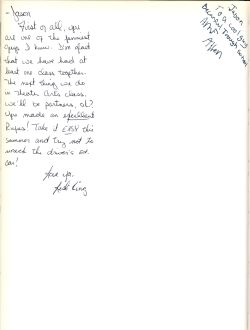 -Jason
First of all, you
are one of the funniest
guys I know. I'm glad
that we have had at
least one class together.
The next thing we do
in Theatre Arts class
we'll be partners, ok?
You made an excellent
Rufus! Take it EASY this
summer and try not to
wreck the driver's ed.
car!
Love ya,
King
Jason
To a cool guy